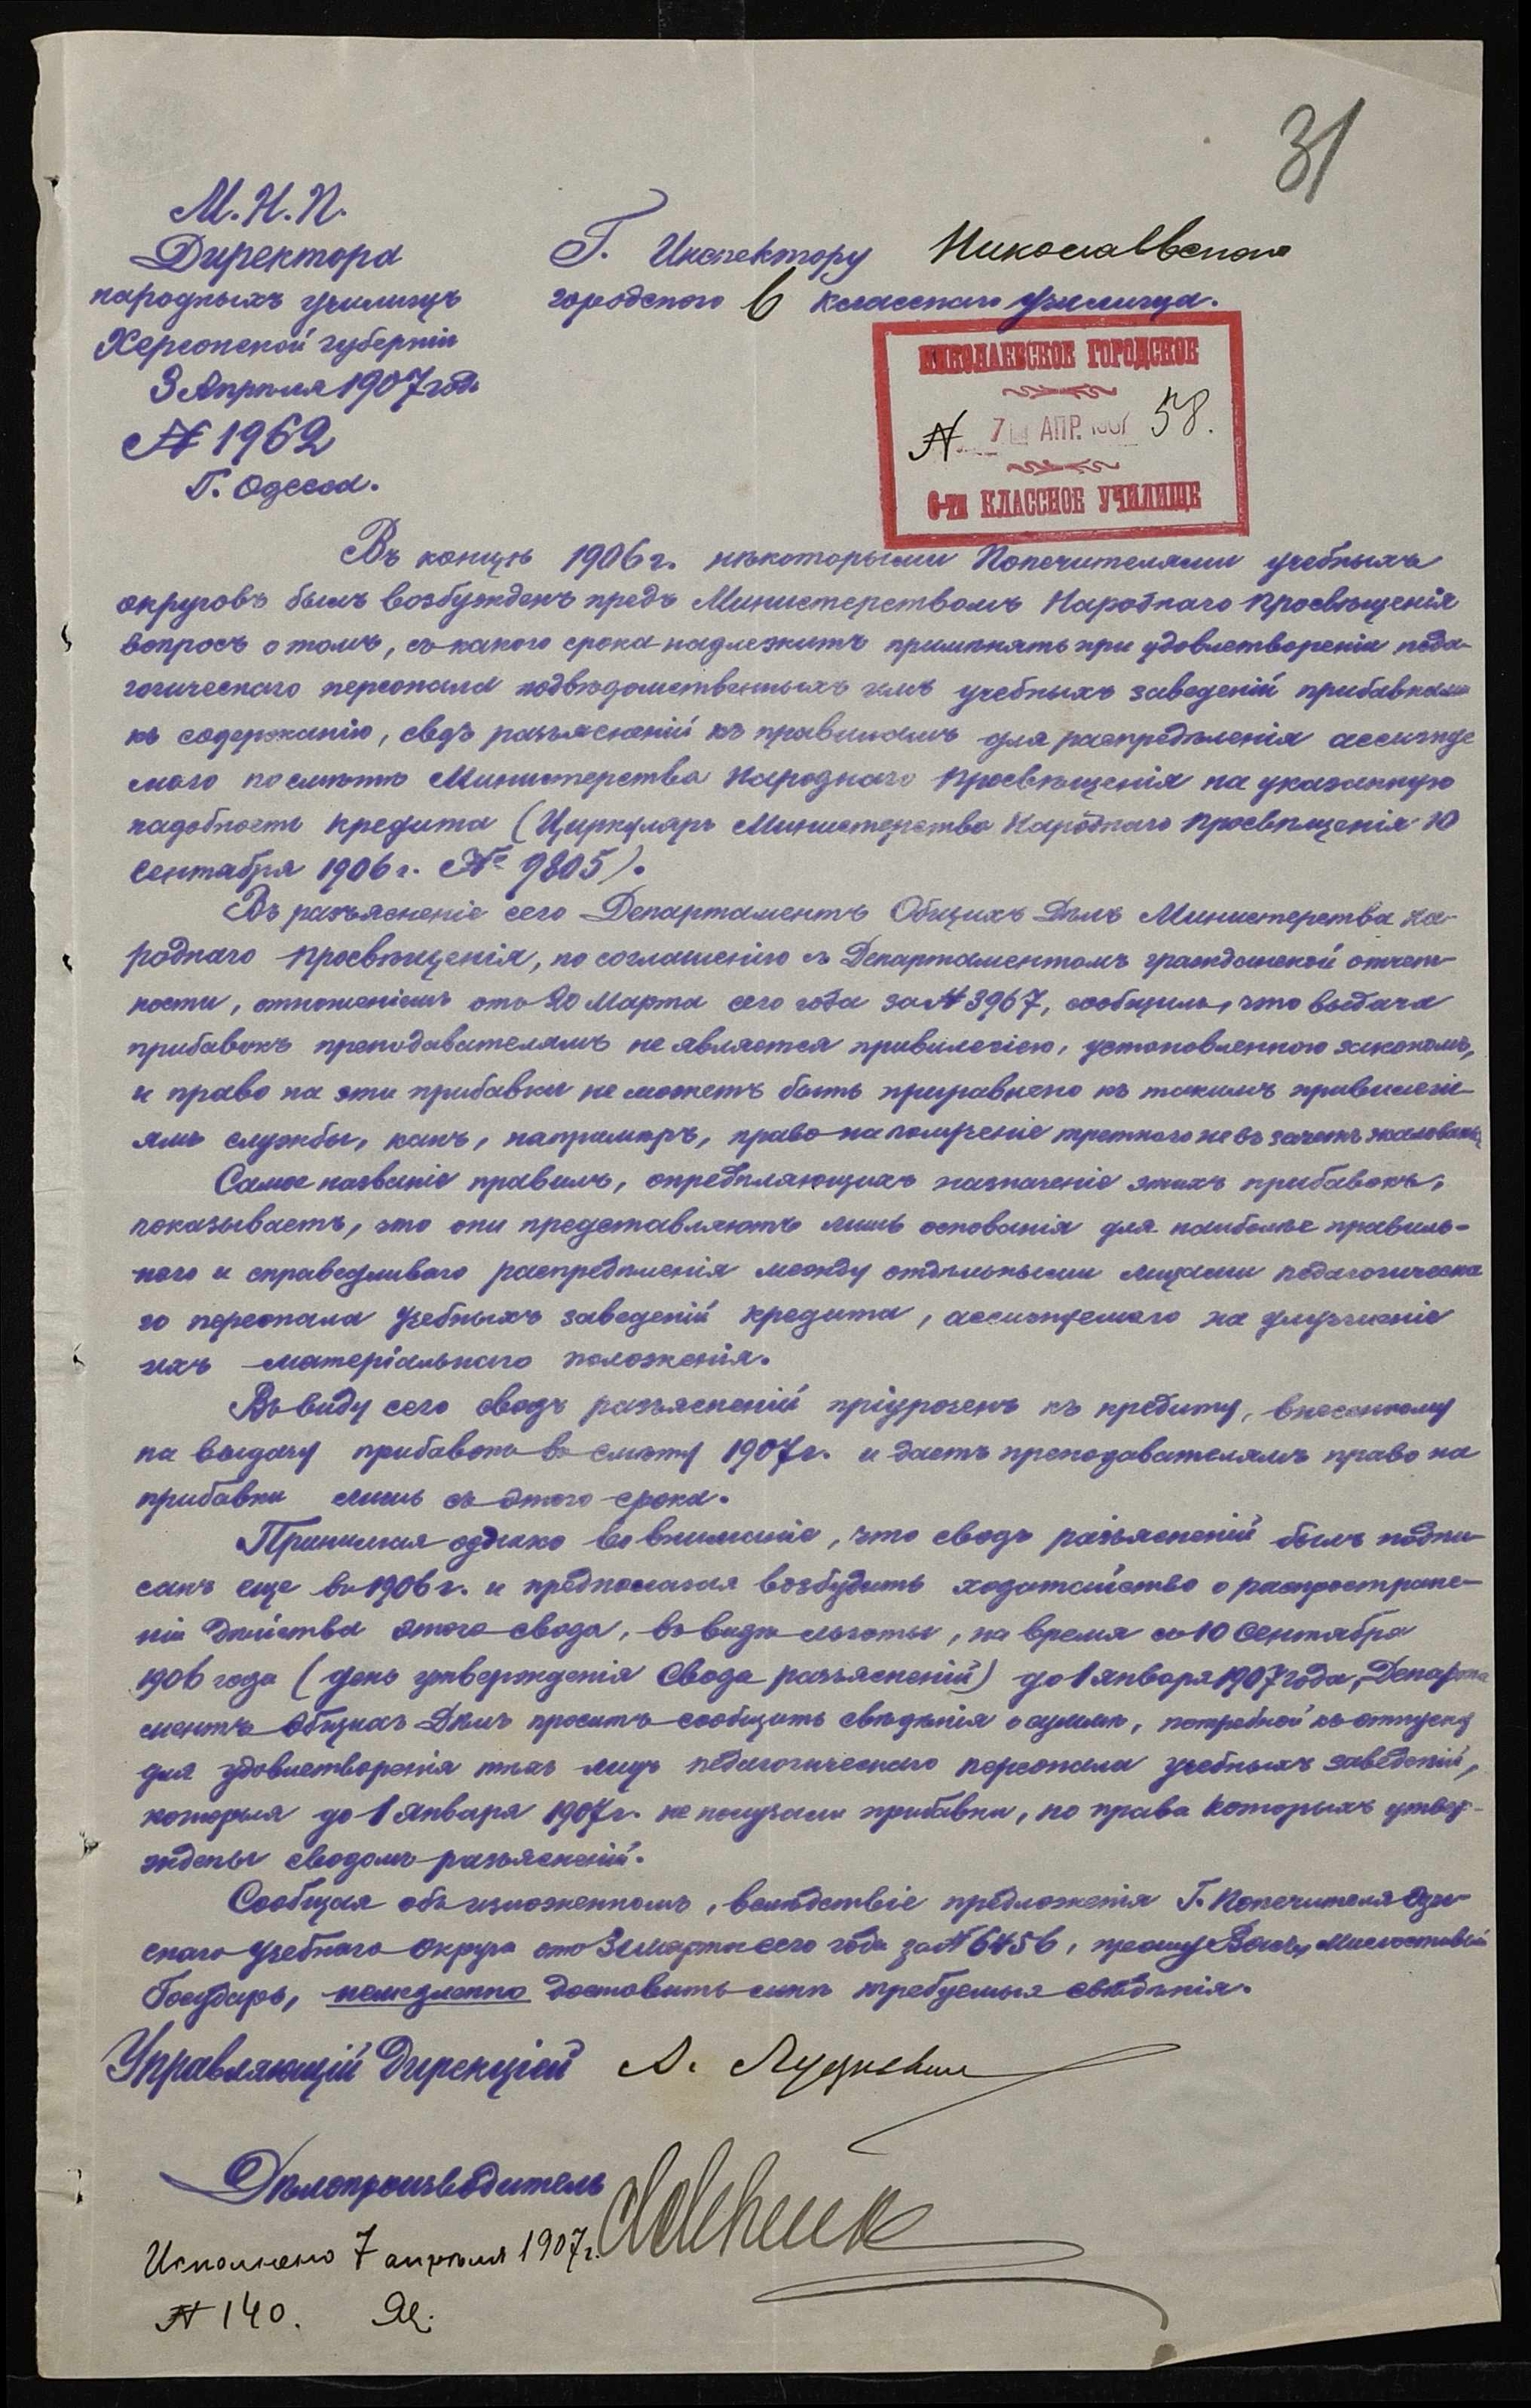 31
М.Н.П.
Директора
народныхъ училищъ
Херсонской губерніи
3 Апрѣля 1907 года
№ 1962
Г. Одесса.
Г. Инспектору Николаевского
городского 6 классного училища.
НИКОЛАЕВСКОЕ ГОРОДСКОЕ
№ 7 АПР. 1907 58.
6-ти КЛАССНОЕ УЧИЛИЩЕ
Въ концѣ 1906 г. нѣкоторыми Попечителями учебныхъ
округовъ былъ возбужденъ предъ Министерствомъ Народнаго Просвѣщенія
вопросъ о томъ, съ какого срока надлежитъ примѣнять при удовлетвореніи педа-
гогическаго персонала подвѣдомственныхъ имъ учебныхъ заведеній прибавками
къ содержанію, сводъ разъясненій къ правиламъ для распредѣленія ассигнуе
маго по смѣтѣ Министерства Народнаго Просвѣщенія на указанную
надобность кредита (Циркуляръ Министерства Народнаго Просвѣщенія 10
Сентября 1906 г. № 9805).
Въ разъясненіе сего Департаментъ Общихъ Дѣлъ Министерства На-
роднаго Просвѣщенія, по соглашенію съ Департаментомъ гражданской отчет-
ности, отношеніемъ отъ 20 Марта сего года за № 3967, сообщилъ, что выдача
прибавокъ преподавателямъ не является привилегіею, установленною закономъ,
и право на эти прибавки не можетъ быть приравнено къ такимъ привилегі-
ямъ службы, какъ, напримѣръ, право на полученіе третного не въ зачетъ жалованья
Самое названіе правилъ, опредѣляющихъ назначеніе этихъ прибавокъ,
показываетъ, что они представляютъ лишь основанія для наиболѣе правиль-
наго и справедливаго распредѣленія между отдѣльными лицами педагогическа
го персонала учебныхъ заведеній кредита, ассигнуемаго на улучшеніе
ихъ матеріальнаго положенія.
Въ виду сего сводъ разъясненій пріуроченъ къ кредиту, внесенному
на выдачу прибавокъ въ смѣту 1907 г. и даетъ преподавателямъ право на
прибавки лишь съ этого срока.
Принимая однако во вниманіе, что сводъ разъясненій былъ подпи-
санъ еще въ 1906 г. и предполагая возбудить ходатайство о распростране-
ніи дѣйствія этого свода, въ видѣ льготы, на время съ 10 Сентября
1906 года (день утвержденія Свода разъясненій) до 1 января 1907 года, Департа
ментъ Общихъ Дѣлъ проситъ сообщить свѣдѣнія о суммѣ, потребной къ отпуску
для удовлетворенія тѣхъ лицъ педагогическаго персонала учебныхъ заведеній,
которыя до 1 Января 1907 г. не получали прибавки, но права которыхъ утвер-
ждены сводомъ разъясненій.
Сообщая объ изложенномъ, вслѣдствіе предложенія Г. Попечителя Одес-
скаго Учебнаго Округа отъ 31 марта сего года за № 6456, прошу Васъ, Милостивый
Государь, немедленно доставить мнѣ требуемыя свѣдѣнія.
Управляющій Дирекціей А.
Дѣлопроизводитель
Исполнено 7 апрѣля 1907 г.
№ 140.